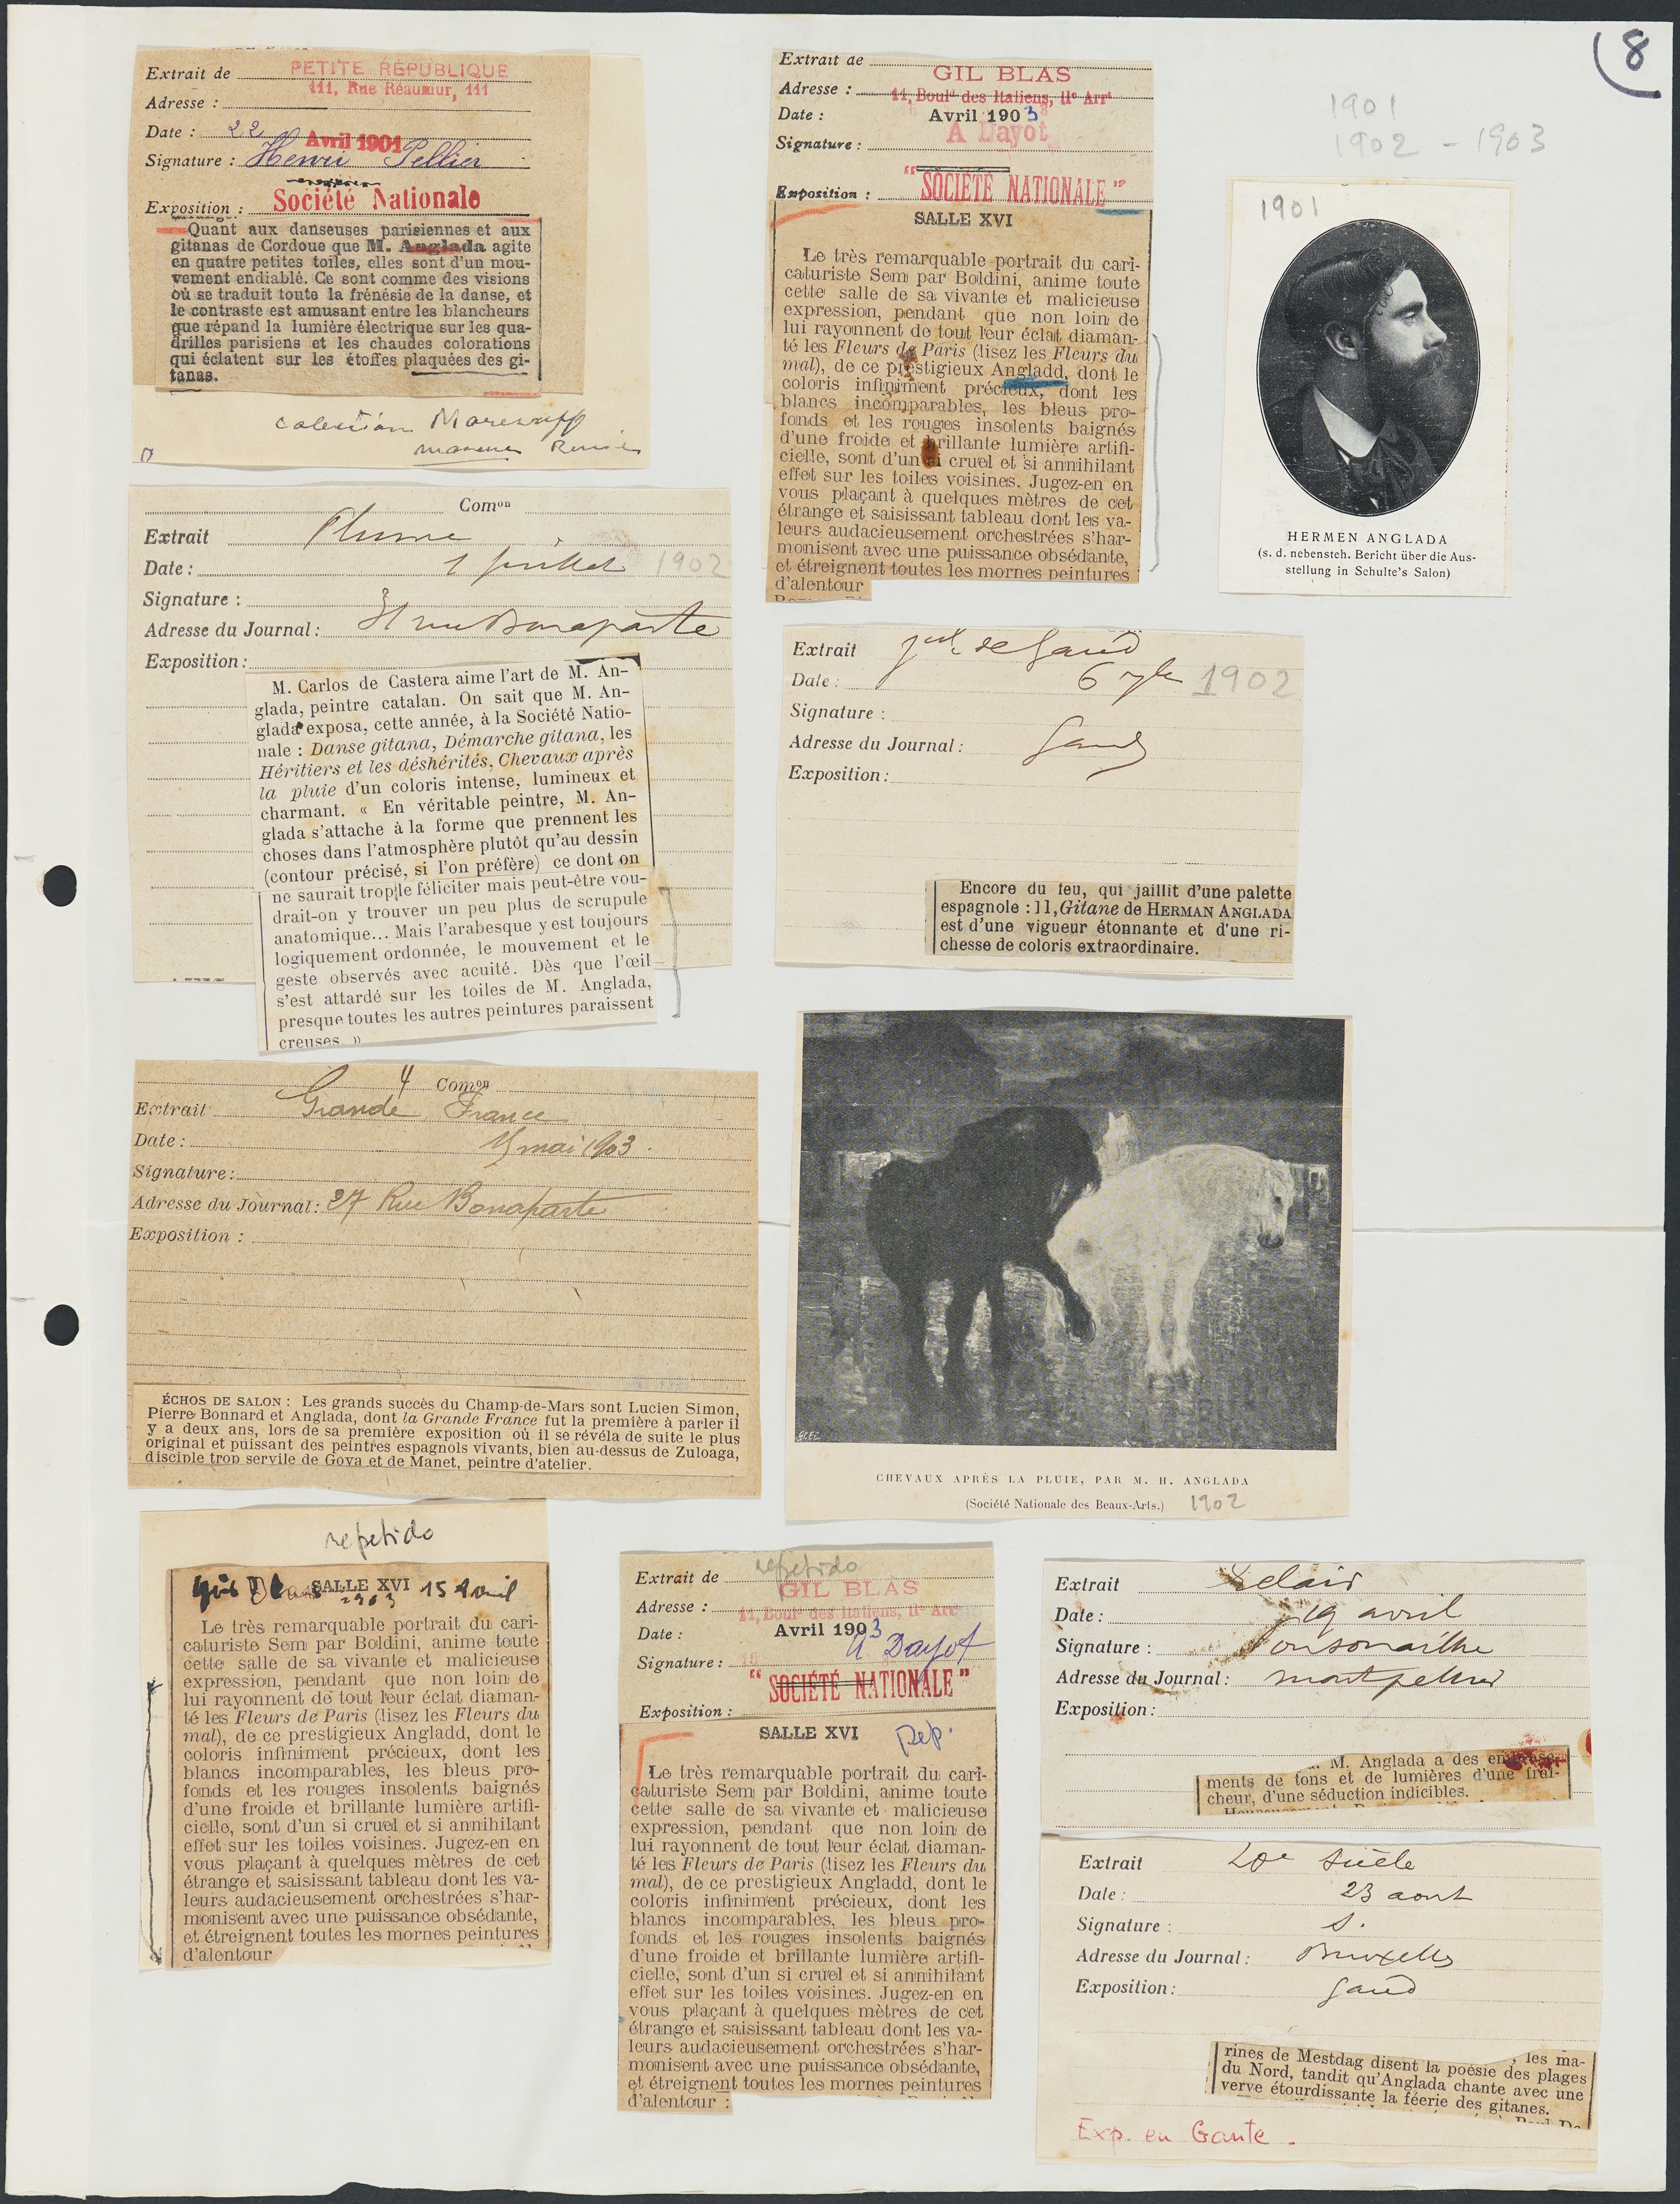 8
1901
1902 - 1903
Extrait de PETITE RÉPUBLIQUE
111, Rue Réaumur, 111
Adresse :
Date : 22 Avril 1901
Signature : Henri Pellier
Exposition : Société Nationale
Quant aux danseuses parisiennes et aux
gitanas de Cordoue que M. Anglada agite
en quatre petites toiles, elles sont d'un mou-
vement endiablé. Ce sont comme des visions
où se traduit toute la frénésie de la danse, et
le contraste est amusant entre les blancheurs
que répand la lumière électrique sur les qua-
drilles parisiens et les chaudes colorations
qui éclatent sur les étoffes plaquées des gi-
tanas.
Extrait de GIL BLAS
Adresse : 11, Boulᵈ des Italiens, IIᵉ Arrᵗ
Date : Avril 1903
Signature : A Dayot
Exposition : "SOCIÉTÉ NATIONALE"
SALLE XVI
Le très remarquable portrait du cari-
caturiste Sem par Boldini, anime toute
cette salle de sa vivante et malicieuse
expression, pendant que non loin de
lui rayonnent de tout leur éclat diaman-
té les Fleurs de Paris (lisez les Fleurs du
mal), de ce prestigieux Angladd, dont le
coloris infiniment précieux, dont les
blancs incomparables, les bleus pro-
fonds et les rouges insolents baignés
d'une froide et brillante lumière artifi-
cielle, sont d'un si cruel et si annihilant
effet sur les toiles voisines. Jugez-en en
vous plaçant à quelques mètres de cet
étrange et saisissant tableau dont les va-
leurs audacieusement orchestrées s'har-
monisent avec une puissance obsédante,
et étreignent toutes les mornes peintures
d'alentour
1901
HERMEN ANGLADA
(s. d. nebensteh. Bericht über die Aus-
stellung in Schulte's Salon)
Comᵒⁿ
Extrait Plume
Date : 1 juillet 1902
Signature :
Adresse du Journal : 31 rue Bonaparte
Exposition :
M. Carlos de Castera aime l'art de M. An-
glada, peintre catalan. On sait que M. An-
glada exposa, cette année, à la Société Natio-
nale : Danse gitana, Démarche gitana, les
Héritiers et les déshérités, Chevaux après
la pluie d'un coloris intense, lumineux et
charmant. « En véritable peintre, M. An-
glada s'attache à la forme que prennent les
choses dans l'atmosphère plutôt qu'au dessin
(contour précisé, si l'on préfère) ce dont on
ne saurait trop le féliciter mais peut-être vou-
drait-on y trouver un peu plus de scrupule
anatomique... Mais l'arabesque y est toujours
logiquement ordonnée, le mouvement et le
geste observés avec acuité. Dès que l'œil
s'est attardé sur les toiles de M. Anglada,
presque toutes les autres peintures paraissent
creuses »
Extrait de Gand
Date : 6 1902
Signature :
Adresse du Journal : Gand
Exposition :
Encore du feu, qui jaillit d'une palette
espagnole : 11, Gitane de HERMAN ANGLADA
est d'une vigueur étonnante et d'une ri-
chesse de coloris extraordinaire.
4 Comᵒⁿ
Extrait Grande France
Date : mai 1903
Signature :
Adresse du Journal : 27 Rue Bonaparte
Exposition :
ÉCHOS DE SALON : Les grands succès du Champ-de-Mars sont Lucien Simon,
Pierre Bonnard et Anglada, dont la Grande France fut la première à parler il
y a deux ans, lors de sa première exposition où il se révéla de suite le plus
original et puissant des peintres espagnols vivants, bien au-dessus de Zuloaga,
disciple trop servile de Goya et de Manet, peintre d'atelier.
CHEVAUX APRÈS LA PLUIE, PAR M. H. ANGLADA
(Société Nationale des Beaux-Arts.) 1902
repetido
Gil Blas SALLE XVI 15 Avril
1903
Le très remarquable portrait du cari-
caturiste Sem par Boldini, anime toute
cette salle de sa vivante et malicieuse
expression, pendant que non loin de
lui rayonnent de tout leur éclat diaman-
té les Fleurs de Paris (lisez les Fleurs du
mal), de ce prestigieux Angladd, dont le
coloris infiniment précieux, dont les
blancs incomparables, les bleus pro-
fonds et les rouges insolents baignés
d'une froide et brillante lumière artifi-
cielle, sont d'un si cruel et si annihilant
effet sur les toiles voisines. Jugez-en en
vous plaçant à quelques mètres de cet
étrange et saisissant tableau dont les va-
leurs audacieusement orchestrées s'har-
monisent avec une puissance obsédante,
et étreignent toutes les mornes peintures
d'alentour
repetido
Extrait de GIL BLAS
Adresse : 11, Boulᵈ des Italiens, IIᵉ Arrᵗ
Date : Avril 1903
Signature : 15 A Dayot
"SOCIÉTÉ NATIONALE"
Exposition :
SALLE XVI rep.
Le très remarquable portrait du cari-
caturiste Sem par Boldini, anime toute
cette salle de sa vivante et malicieuse
expression, pendant que non loin de
lui rayonnent de tout leur éclat diaman-
té les Fleurs de Paris (lisez les Fleurs du
mal), de ce prestigieux Angladd, dont le
coloris infiniment précieux, dont les
blancs incomparables, les bleus pro-
fonds et les rouges insolents baignés
d'une froide et brillante lumière artifi-
cielle, sont d'un si cruel et si annihilant
effet sur les toiles voisines. Jugez-en en
vous plaçant à quelques mètres de cet
étrange et saisissant tableau dont les va-
leurs audacieusement orchestrées s'har-
monisent avec une puissance obsédante,
et étreignent toutes les mornes peintures
d'alentour :
Extrait Eclair
Date : 19 avril
Signature : Ponsonailhe
Adresse du Journal : Montpellier
Exposition :
M. Anglada a des
ments de tons et de lumières d'une fraî-
cheur, d'une séduction indicibles.
Extrait 20e Siècle
Date : 23 aout
Signature : S.
Adresse du Journal : Bruxelles
Exposition : Gand
, les ma-
rines de Mestdag disent la poésie des plages
du Nord, tandit qu'Anglada chante avec une
verve étourdissante la féerie des gitanes.
Exp. en Gante.